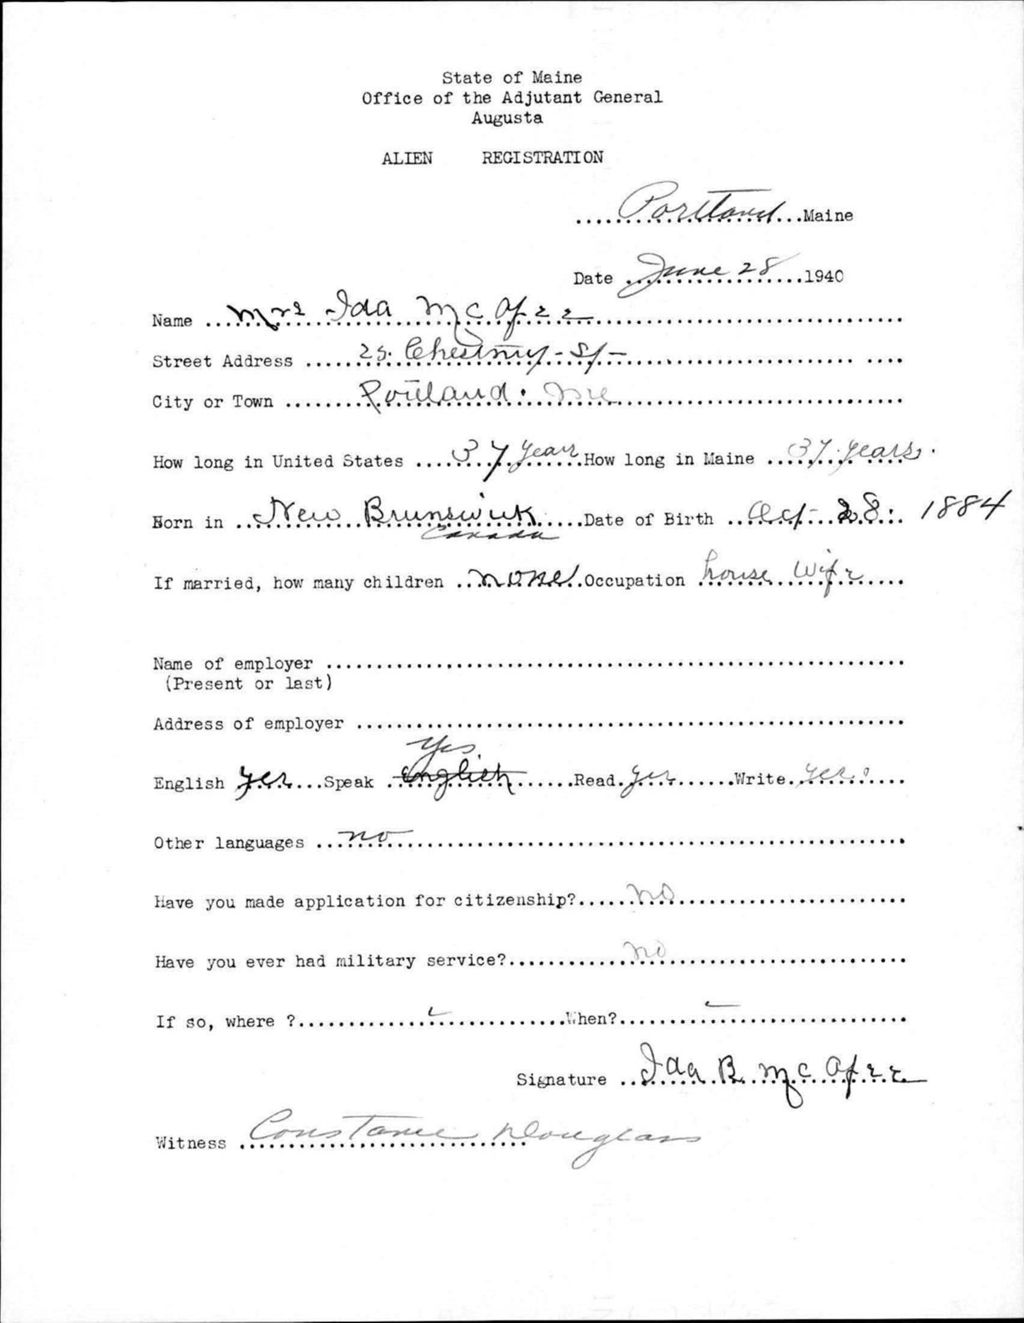 State of Maine
Office of the Adjutant General
Augusta
ALIEN REGISTRATION
....Portland...Maine
Date ...June 28...1940
Name ...Mrs Ida McAfee...
Street Address ...25. Chestnut-St-...
City or Town ...Portland. Me...
How long in United States ...37 years...How long in Maine ...37 years.
Born in ...New Brunswick...Date of Birth ...Oct-28. 1884
Canada
If married, how many children ...none...Occupation house wife...
Name of employer ...
(Present or last)
Address of employer ...
yes
English yes...Speak ...English...Read.yes...Write..yes...
Other languages ...no...
Have you made application for citizenship?...no...
Have you ever had military service?...no...
If so, where ?...When?...
Signature ...Ida B. McAfee
Witness Constance Douglass